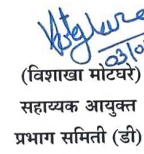 (विशाखा मोटघरे)
सहाय्यक आयुक्त
प्रभाग समिती (डी)